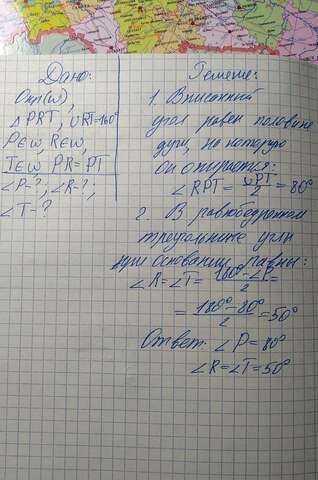 Дано:
Окр(ω),
△PRT, ∪RT=160°
P∈ω, R∈ω,
T∈ω, PR=PT
∠P-?, ∠R-?,
∠T-?
Решение:
1. Вписанный
угол равен половине
дуги, на которую
он опирается:
∠RPT = ∪РТ/2 = 80°
2. В равнобедренном
треугольнике углы
при основании равны:
∠R=∠T= 180°-∠P/2 =
= 180°-80°/2 = 50°
Ответ: ∠P=80°
∠R=∠T=50°